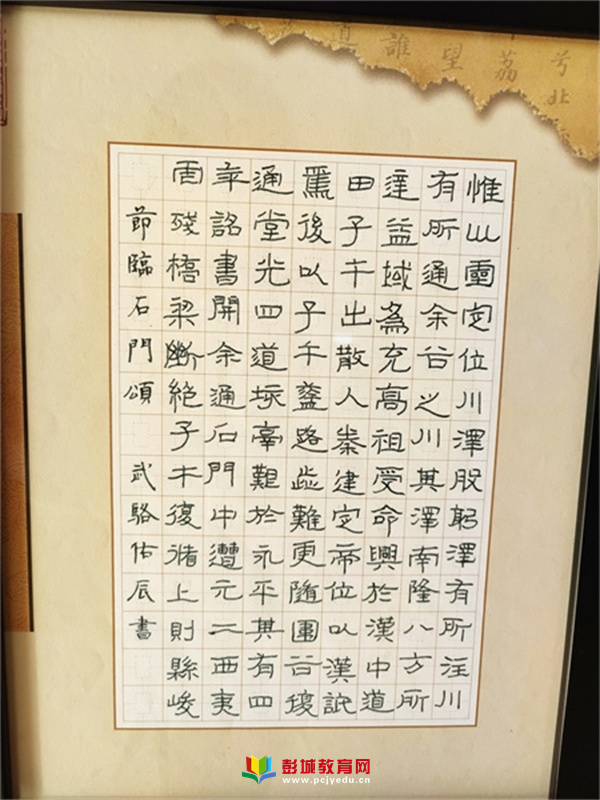 惟山靈定位川澤股躬澤有所注川
有所通余谷之川其澤南隆八方所
達益域為充高祖受命興於漢中道
由子午出散入秦建定帝位以漢詆
焉後以子午塗路歰難更隨圍谷復
通堂光四道垓鬲艱於永平其有四
年詔書開余通石門中遭元二西夷
虐殘橋梁斷絕子午復循上則縣峻
節臨石門頌 武駱佑辰書
兮北
荔
望
誰
道
彭城教育网
www.pcjyedu.cn